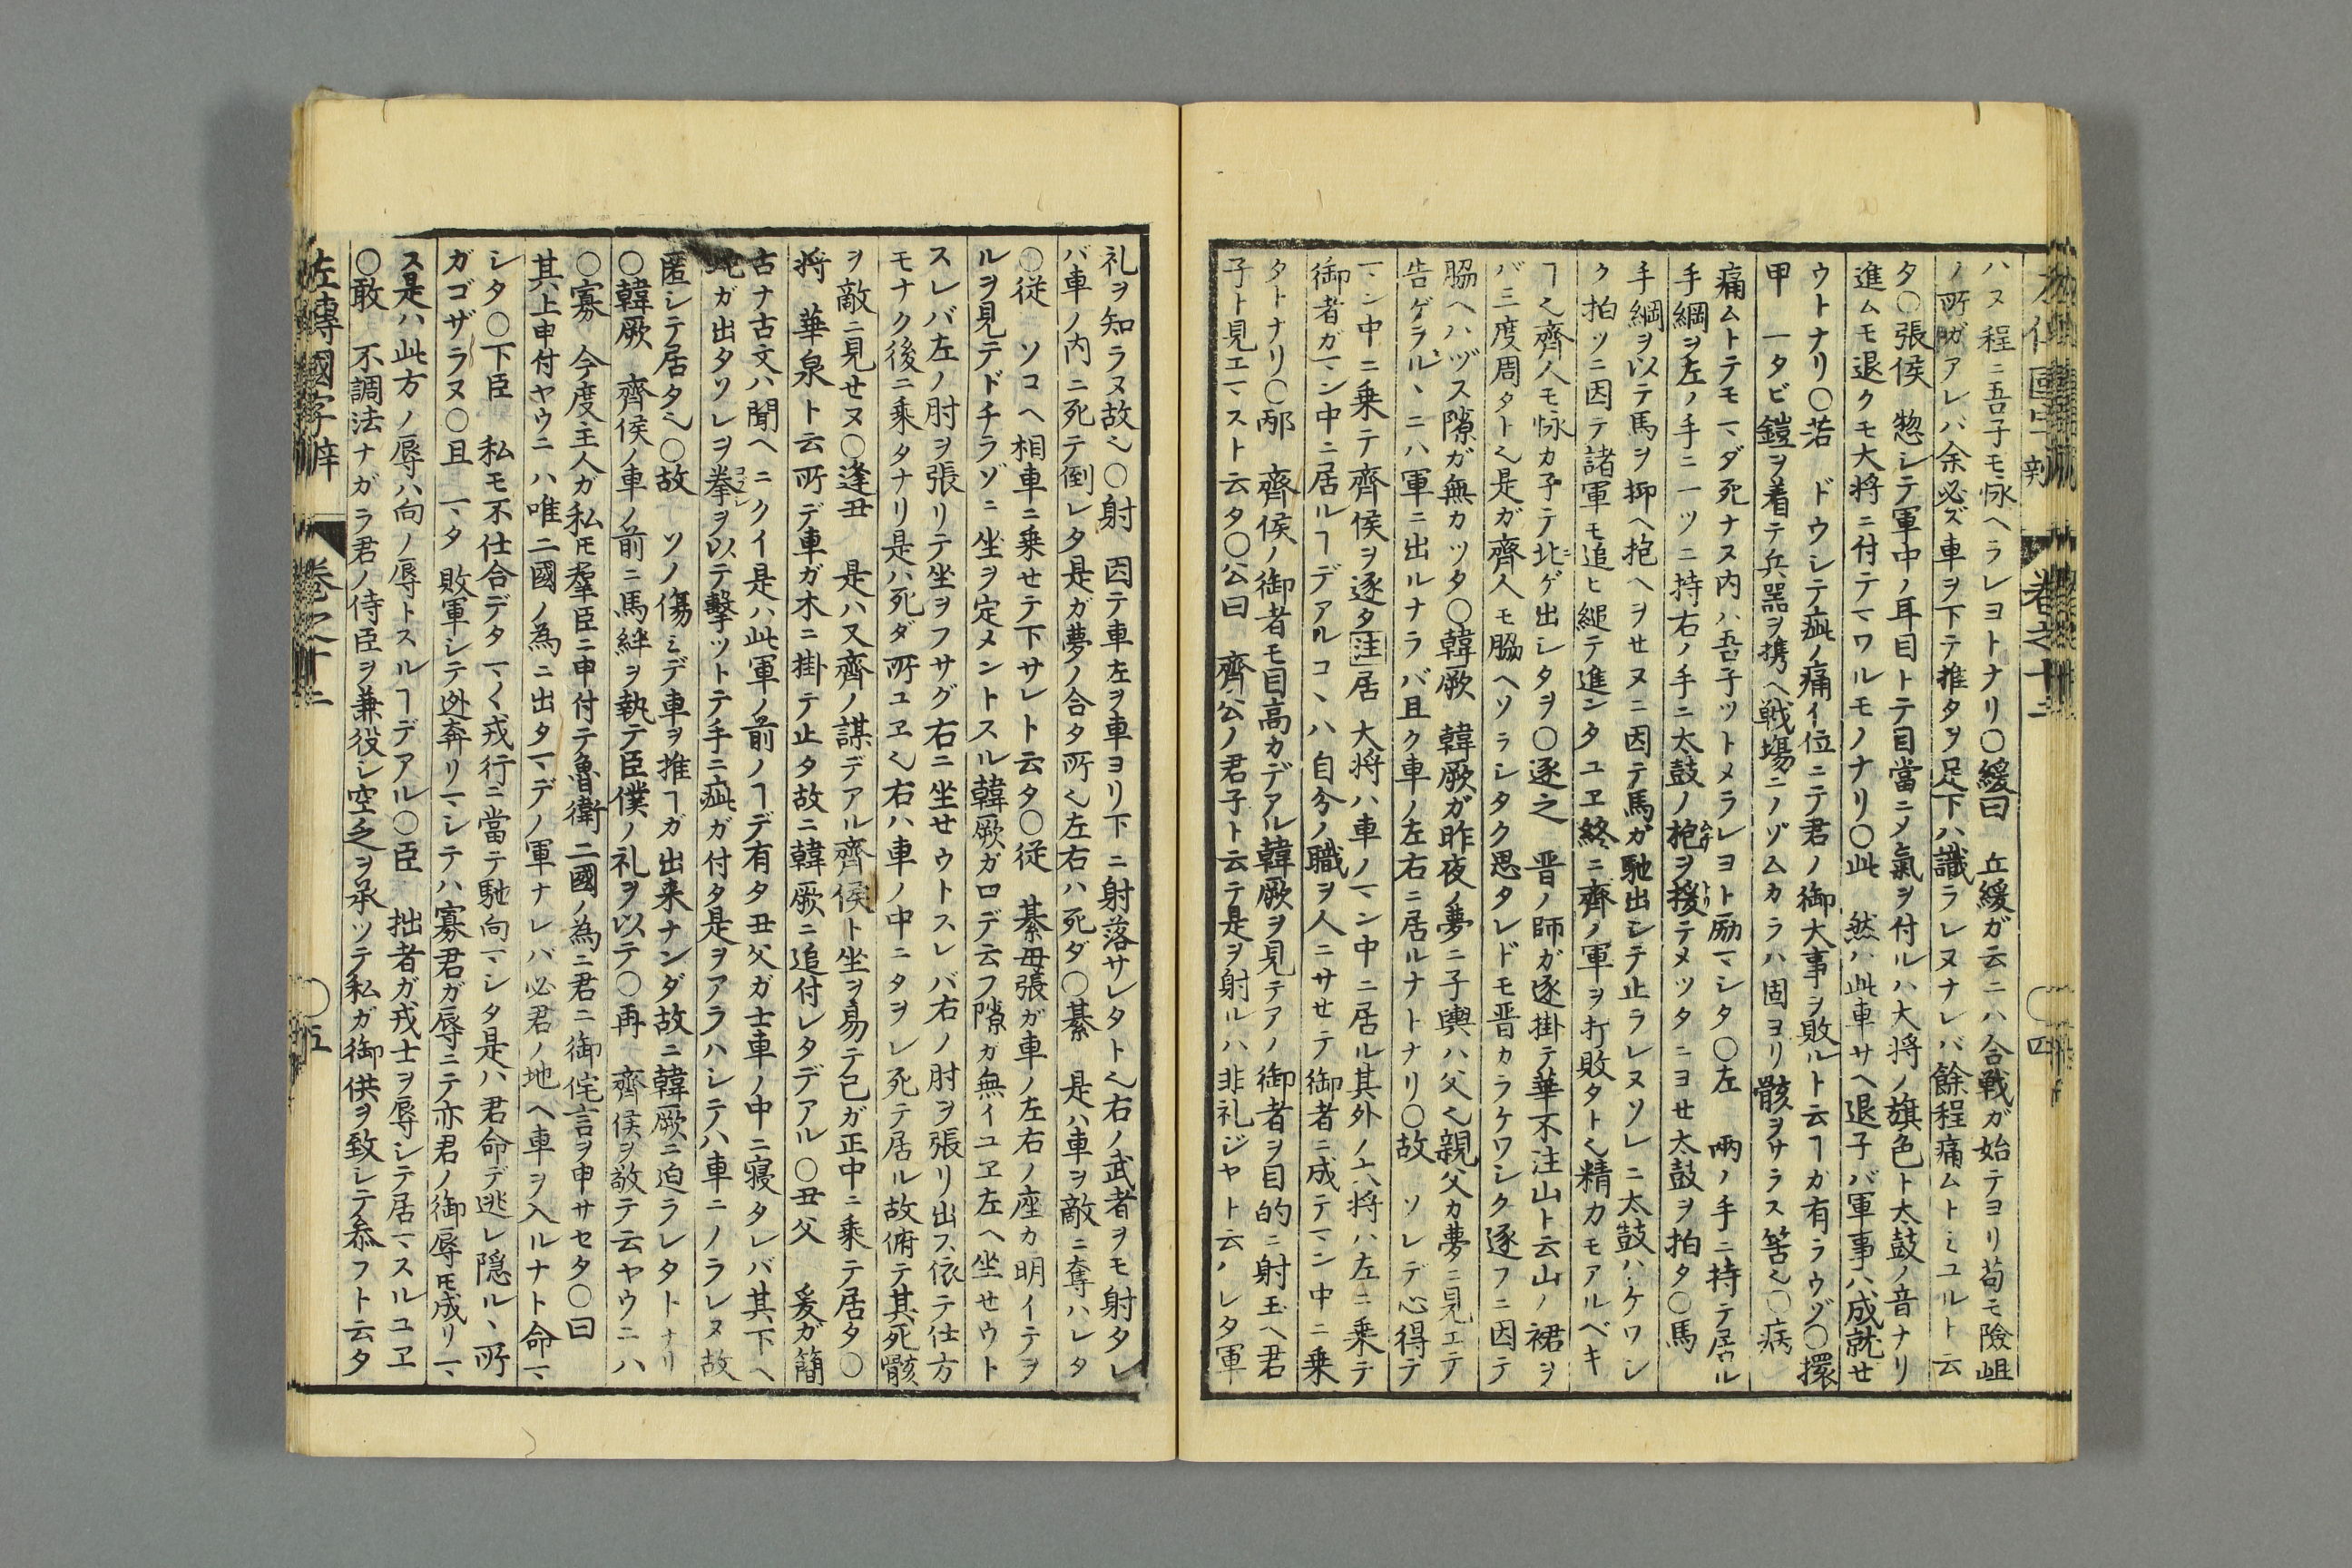 ハヌ程ニ吾子モ怺ヘラレヨトナリ○緩曰 丘緩ガ云ニハ合戦ガ始テヨリ苟モ險岨
ノ所ガアレバ余必ズ車ヲ下テ推タヲ足下ハ識ラレヌナレバ餘程痛ムトミユルト云
タ○張侯 惣シテ軍中ノ耳目トテ目當ニメ氣ヲ付ルハ大将ノ旗色ト太鼓ノ音ナリ
進ムモ退クモ大将ニ付テマワルモノナリ○此 然ハ此車サヘ退子バ軍事ハ成就せ
ウトナリ○若 ドウシテ疵ノ痛イ位ニテ君ノ御大事ヲ敗ルト云ヿカ有ラウゾ○擐
甲 一タビ鎧ヲ着テ兵器ヲ携ヘ戦場ニノゾムカラハ固ヨリ骸ヲサラス筈也○病
痛ムトテモマダ死ナヌ内ハ吾子ツトメラレヨト励マシタ○左 兩ノ手ニ持テ居ル
手綱ヲ左ノ手ニ一ツニ持右ノ手ニ太鼓ノ枹ヲ援テメツタニヨせ太鼓ヲ拍タ○馬
手綱ヲ以テ馬ヲ抑ヘ抱ヘヲせヌニ因テ馬ガ馳出シテ止ラレヌソレニ太鼓ハケワシ
ク拍ツニ因テ諸軍モ追ヒ縋テ進ンタユヱ終ニ齊ノ軍ヲ打敗タト也精カモアルベキ
ヿ也齊人モ怺カ子テ北ゲ出シタヲ○逐之 晋ノ師ガ逐掛テ華不注山ト云山ノ裙ヲ
バ三度周タト也是ガ齊人モ脇ヘソラシタク思タレドモ晋カラケワシク逐フニ因テ
脇ヘハヅス隙ガ無カツタ○韓厥 韓厥ガ昨夜ノ夢ニ子輿ハ父也親父カ夢ニ見エテ
告ゲラルヽニハ軍ニ出ルナラバ且ク車ノ左右ニ居ルナトナリ○故 ソレデ心得テ
マン中ニ乗テ齊侯ヲ逐タ注居 大将ハ車ノマン中ニ居ル其外ノ六将ハ左ニ乗テ
御者ガマン中ニ居ルヿデアルコヽハ自分ノ職ヲ人ニサせテ御者ニ成テマン中ニ乗
タトナリ○邴 齊侯ノ御者モ目高カデアル韓厥ヲ見テアノ御者ヲ目的ニ射玉ヘ君
子ト見エマスト云タ○公曰 齊公ノ君子ト云テ是ヲ射ルハ非礼ジヤト云ハレタ軍
卷之十二
○四
礼ヲ知ラヌ故也○射 因テ車左ヲ車ヨリ下ニ射落サレタト也右ノ武者ヲモ射タレ
バ車ノ内ニ死テ倒レタ是ガ夢ノ合タ所也左右ハ死ダ○綦 是ハ車ヲ敵ニ奪ハレタ
○従 ソコヘ相車ニ乗せテ下サレト云タ○従 綦毋張ガ車ノ左右ノ座カ明イテヲ
ルヲ見テドチラゾニ坐ヲ定メントスル韓厥ガ口デ云フ隙ガ無イユヱ左ヘ坐せウト
スレバ左ノ肘ヲ張リテ坐ヲフサグ右ニ坐せウトスレバ右ノ肘ヲ張リ出ス依テ仕方
モナク後ニ乗タナリ是ハ死ダ所ユヱ也右ハ車ノ中ニタヲレ死テ居ル故俯テ其死骸
ヲ敵ニ見せヌ○逢丑 是ハ又齊ノ謀デアル齊侯ト坐ヲ易テ已ガ正中ニ乗テ居タ○
将 華泉ト云所デ車ガ木ニ掛テ止タ故ニ韓厥ニ追付レタデアル○丑父 爰ガ簡
古ナ古文ハ聞ヘニクイ是ハ此軍ノ前ノヿデ有タ丑父ガ士車ノ中ニ寝タレバ其下ヘ
蛇ガ出タソレヲ拳ヲ以テ擊ツトテ手ニ疵ガ付タ是ヲアラハシテハ車ニノラレヌ故
匿シテ居タ也○故 ソノ傷ミデ車ヲ推ヿガ出来ナンダ故ニ韓厥ニ迫ラレタトナリ
○韓厥 齊侯ノ車ノ前ニ馬絆ヲ執テ臣僕ノ礼ヲ以テ○再 齊侯ヲ敬テ云ヤウニハ
○寡 今度主人ガ私モ羣臣ニ申付テ魯衛二國ノ為ニ君ニ御侘言ヲ申サセタ○曰
其上申付ヤウニハ唯二國ノ為ニ出タマデノ軍ナレバ必君ノ地ヘ車ヲ入ルナト命マ
シタ○下臣 私モ不仕合デタマ〱戎行ニ當テ馳向マシタ是ハ君命デ逃レ隠ルヽ所
ガゴザラヌ○且 マタ敗軍シテ迯奔リマシテハ寡君ガ辱ニテ亦君ノ御辱モ成リマ
ス是ハ此方ノ辱ハ向ノ辱トスルヿデアル○臣 拙者ガ戎士ヲ辱シテ居マスルユヱ
○敢 不調法ナガラ君ノ侍臣ヲ兼役シ空乏ヲ承ツテ私ガ御供ヲ致シテ参フト云タ
左傳國字辯 卷之十二 ○五